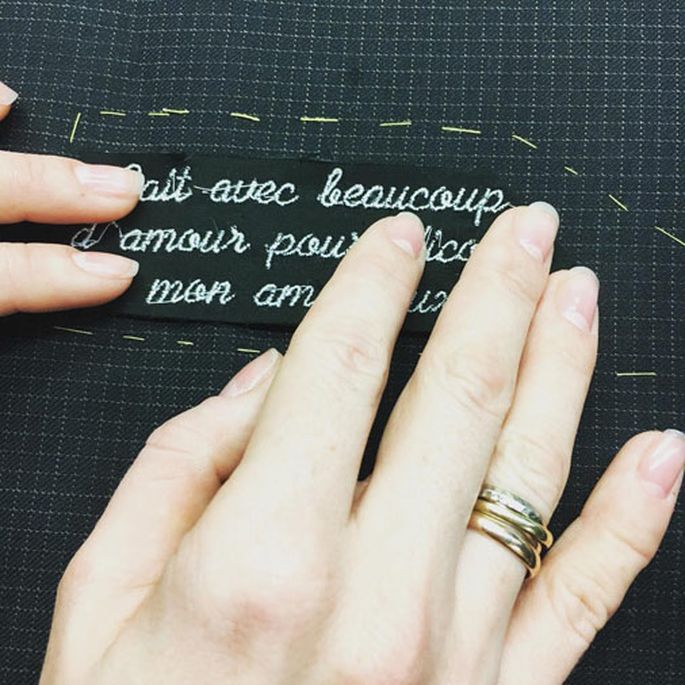 Fait avec beaucoup
d'amour pour
mon